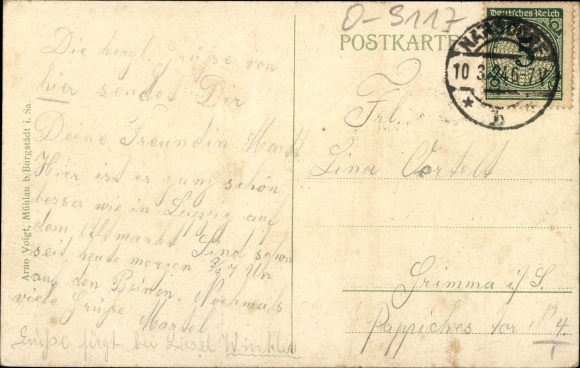 O-9117
POSTKARTE
Deutsches Reich
5
10.3.24.6-7V.
* b
Die herzl. Grüße von
hier sendet Dir
Deine Freundin
Hier ist es ganz schön
besser wie in Leipzig auf
dem Altmarkt. Sind schon
seit heute morgen 3/4 7 Uhr
auf den Beinen. Nochmals
viele Grüße
Grüße fügt bei Liesel Winkler
Frl.
Lina
Grimma i/S.
4.
I
Arno Voigt, Mühlau b. Burgstädt i. Sa.